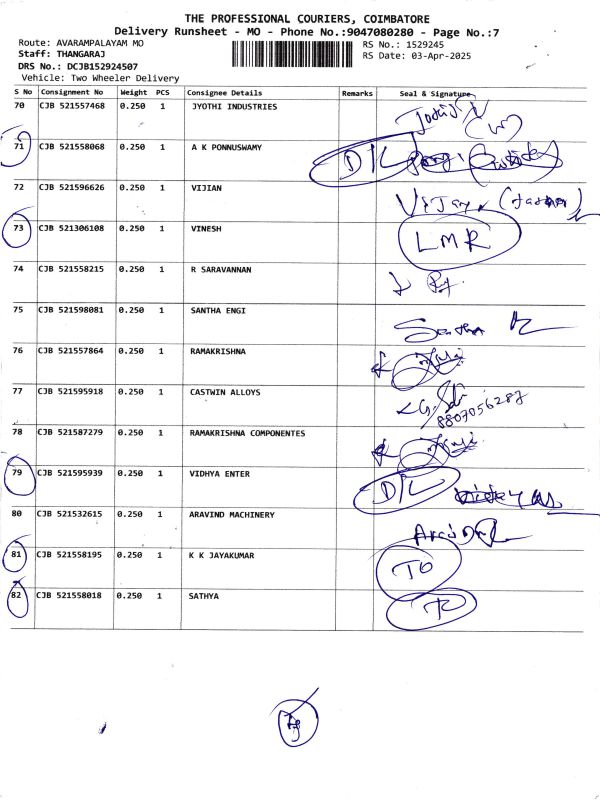 THE PROFESSIONAL COURIERS, COIMBATORE
Delivery Runsheet - MO - Phone No.:9047080280 - Page No.:7
Route: AVARAMPALAYAM MO
RS No.: 1529245
Staff: THANGARAJ
RS Date: 03-Apr-2025
DRS No.: DCJB152924507
Vehicle: Two Wheeler Delivery
S No Consignment No Weight PCS Consignee Details Remarks Seal & Signature
70 CJB 521557468 0.250 1 JYOTHI INDUSTRIES
71 CJB 521558068 0.250 1 A K PONNUSWAMY D/L
72 CJB 521596626 0.250 1 VIJIAN
73 CJB 521306108 0.250 1 VINESH LMR
74 CJB 521558215 0.250 1 R SARAVANNAN
75 CJB 521598081 0.250 1 SANTHA ENGI Santha
76 CJB 521557864 0.250 1 RAMAKRISHNA
77 CJB 521595918 0.250 1 CASTWIN ALLOYS 8807056287
78 CJB 521587279 0.250 1 RAMAKRISHNA COMPONENTES
79 CJB 521595939 0.250 1 VIDHYA ENTER D/L
80 CJB 521532615 0.250 1 ARAVIND MACHINERY
81 CJB 521558195 0.250 1 K K JAYAKUMAR TO
82 CJB 521558018 0.250 1 SATHYA